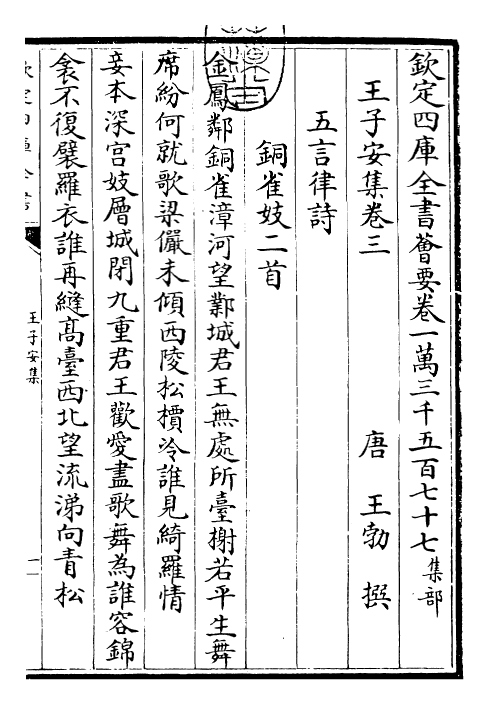 欽定四庫全書薈要卷一萬三千五百七十七集部
王子安集卷三　唐　王勃　撰
五言律詩
銅雀妓二首
金鳳鄰銅雀漳河望鄴城君王無處所臺榭若平生舞
席紛何就歌梁儼未傾西陵松檟冷誰見綺羅情
妾本深宫妓層城閉九重君王歡愛盡歌舞為誰容錦
衾不復襞羅衣誰再縫髙臺西北望流涕向青松
欽定四庫全書
王子安集
一